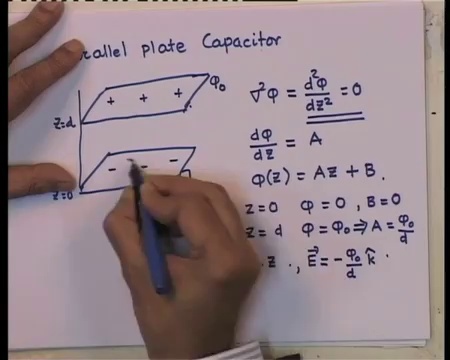 rallel plate Capacitor
+ + + φ₀
z=d
- - -
z=0
∇²φ = d²φ/dz² = 0
dφ/dz = A
φ(z) = Az + B.
z=0 φ=0, B=0
z=d φ=φ₀ ⇒ A = φ₀/d
z ., E⃗ = -φ₀/d k̂.